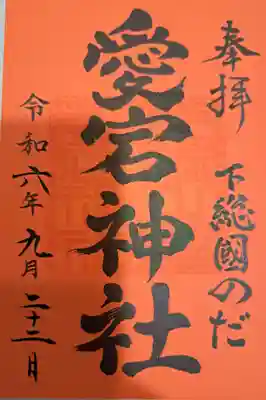 奉拝
下総國のだ
愛宕神社
令和六年九月二十二日